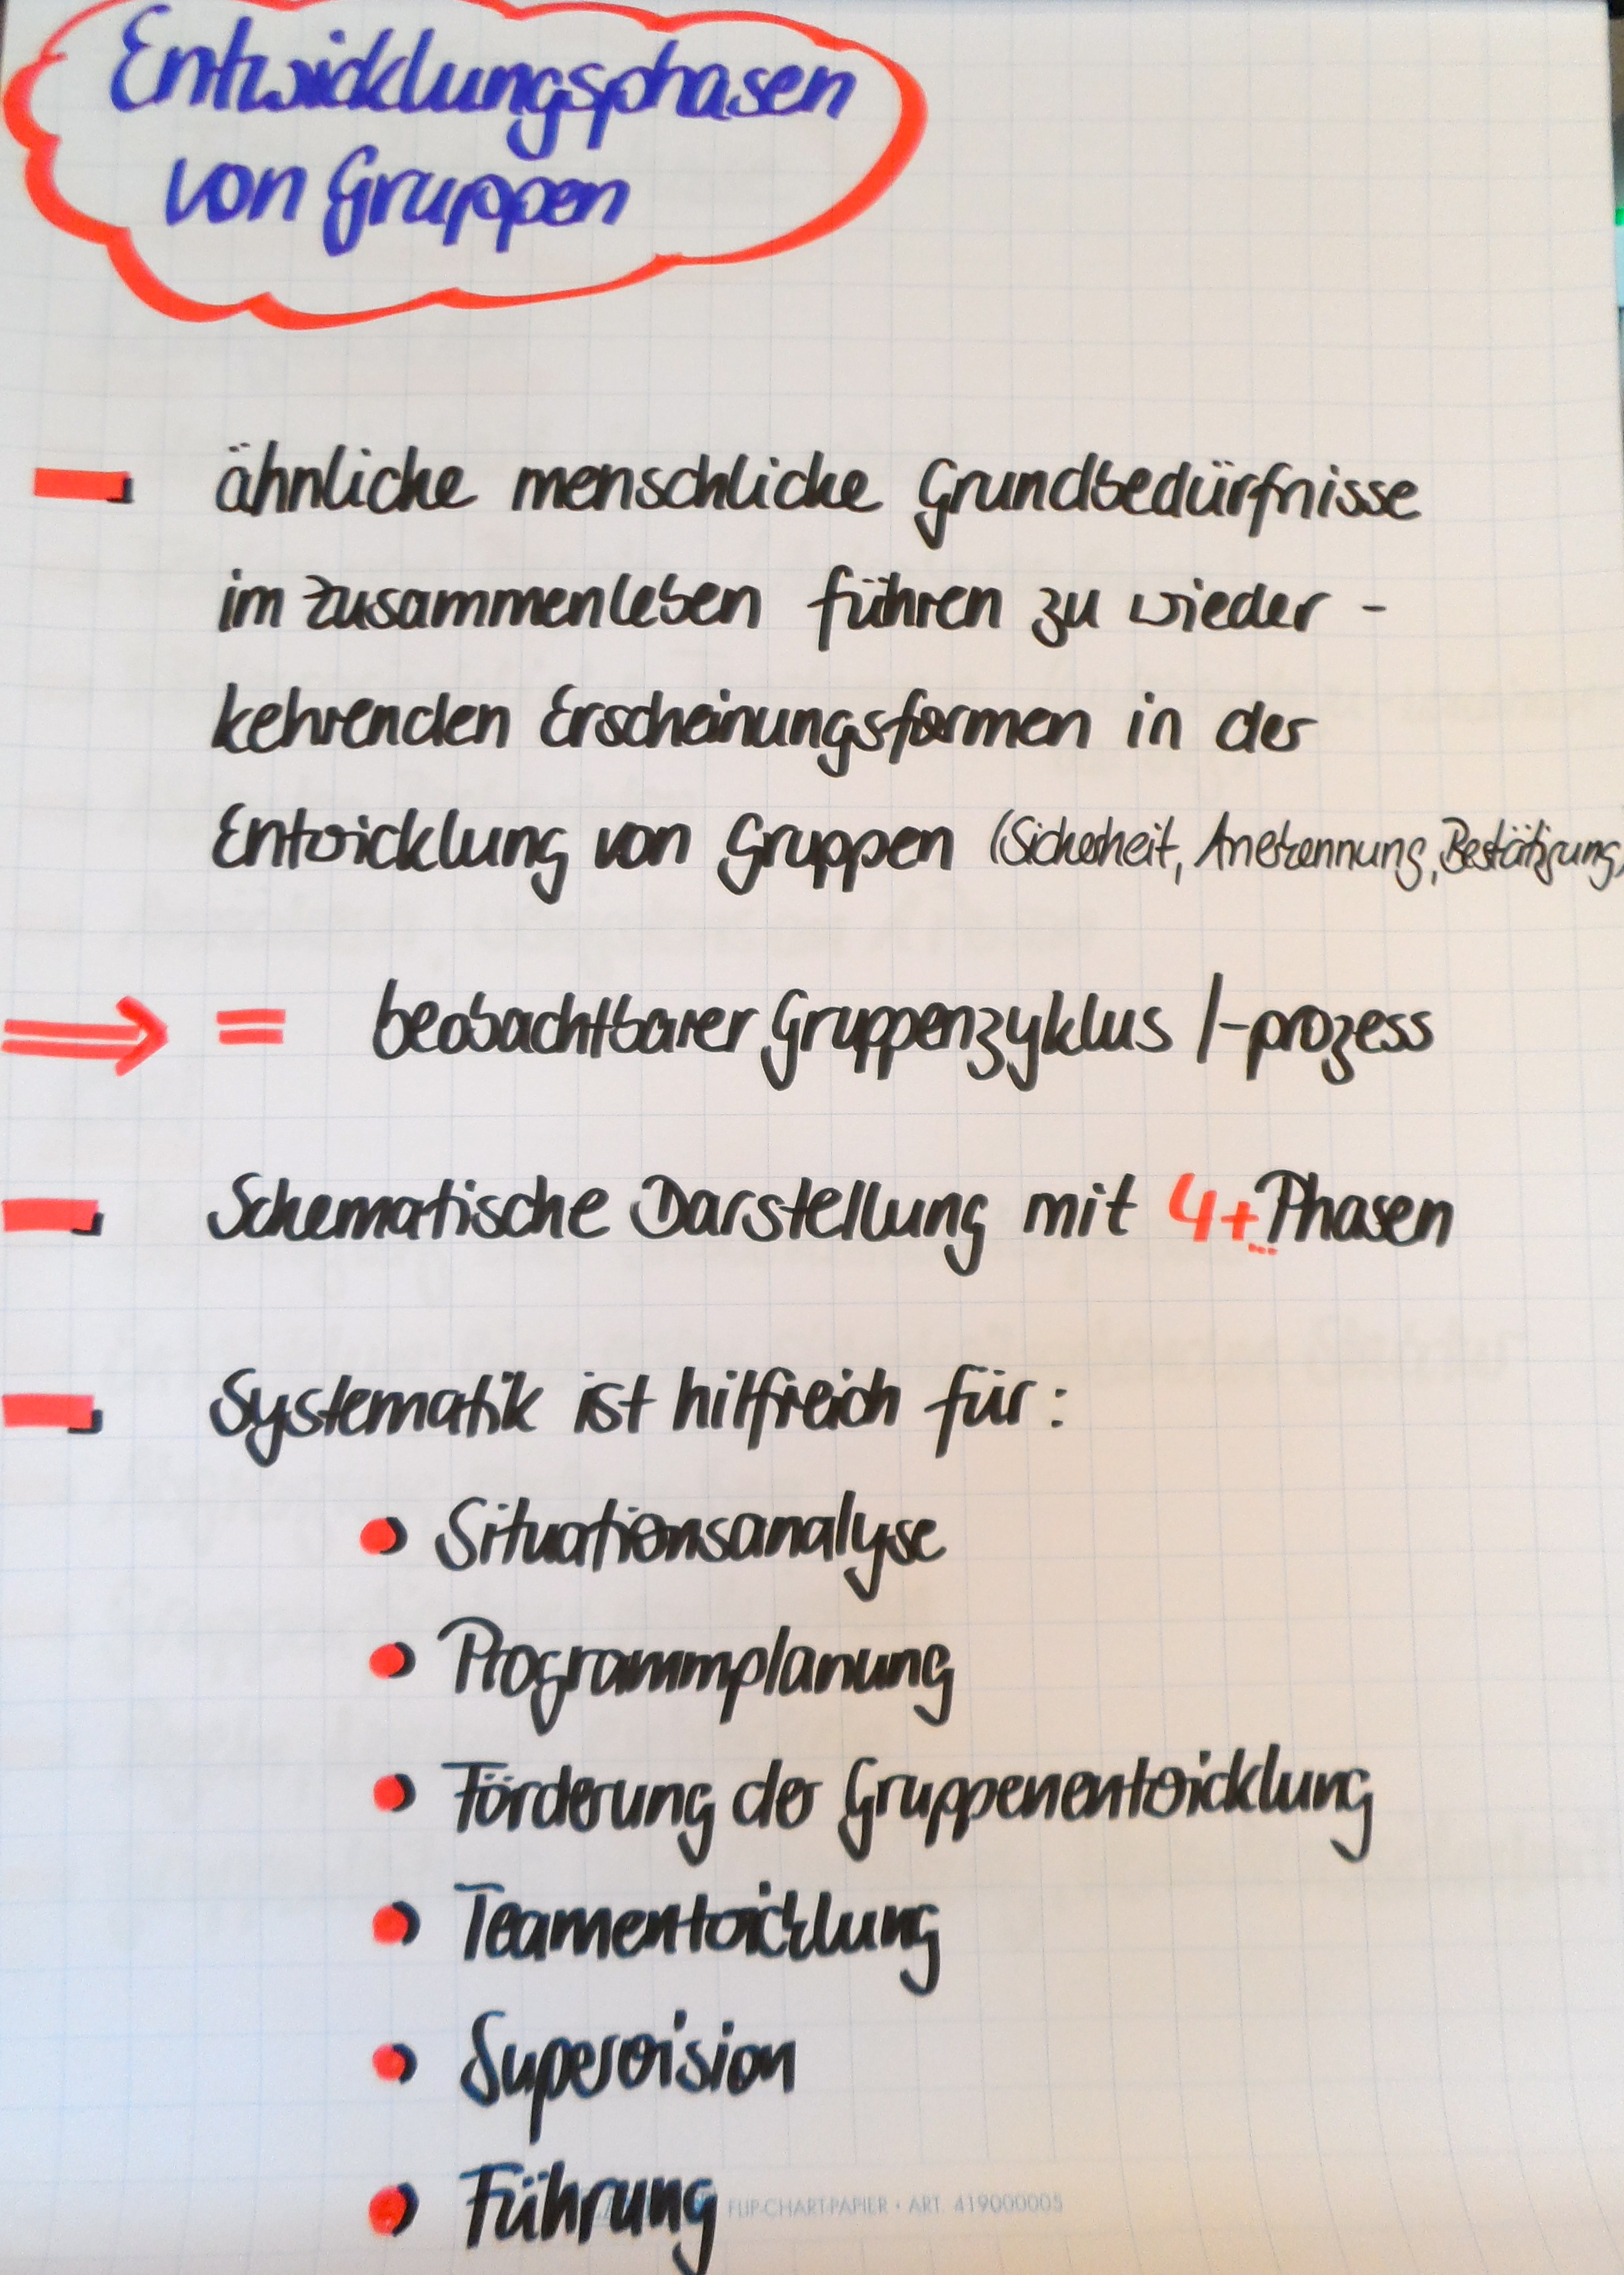 Entwicklungsphasen
von Gruppen
ähnliche menschliche Grundbedürfnisse
im Zusammenleben führen zu wieder -
kehrenden Erscheinungsformen in der
Entwicklung von Gruppen (Sicherheit, Anerkennung, Bestätigung,
⇒ = beobachtbarer Gruppenzyklus /-prozess
Schematische Darstellung mit 4+... Phasen
Systematik ist hilfreich für:
Situationsanalyse
Programmplanung
Förderung der Gruppenentwicklung
Teamentwicklung
Supervision
Führung
FLIP-CHART-PAPIER • ART. 419000005